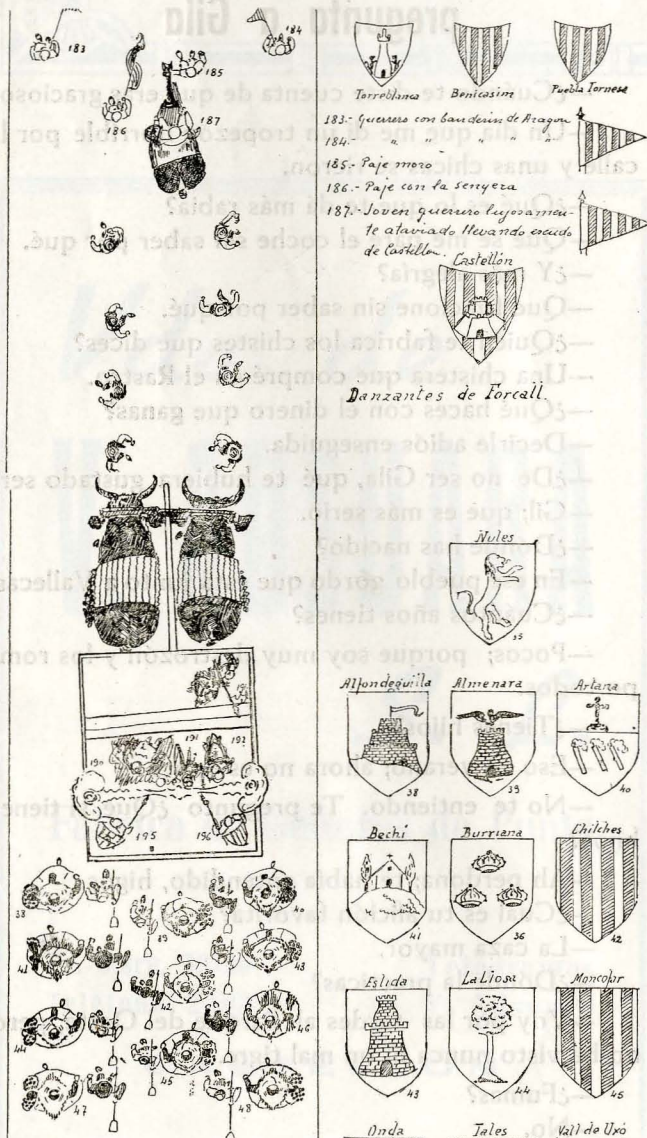 183
184
185
186
187
190
191
192
195
196
38
39
40
41
42
43
44
45
46
47
48
Torreblanca Benicasim Puebla Tornesa
183.- Guerrero con banderin de Aragon
184. " " " " "
185.- Paje moro
186.- Paje con la senyera
187.- Joven guerrero lujosamen-
te ataviado llevando escudo
de Castellon.
Castellón
Danzantes de Forcall.
Nules
35
Alfondeguilla Almenara Artana
38 39 40
Bechí Burriana Chilches
41 36 42
Eslida La Llosa Moncofar
43 44 45
Onda Tales Vall de Uxó